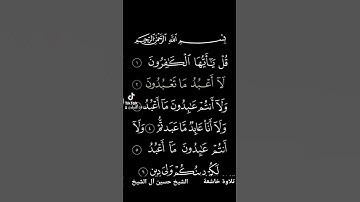 بِسْمِ اللَّهِ الرَّحْمَٰنِ الرَّحِيمِ
قُلْ يَٰٓأَيُّهَا ٱلْكَٰفِرُونَ ١
لَآ أَعْبُدُ مَا تَعْبُدُونَ ٢
وَلَآ أَنتُمْ عَٰبِدُونَ مَآ أَعْبُدُ ٣
وَلَآ أَنَا۠ عَابِدٌ مَّا عَبَدتُّمْ ٤ وَلَآ
أَنتُمْ عَٰبِدُونَ مَآ أَعْبُدُ ٥
لَكُمْ دِينُكُمْ وَلِىَ دِينِ ٦
تلاوة خاشعة الشيخ حسين آل الشيخ
TikTok